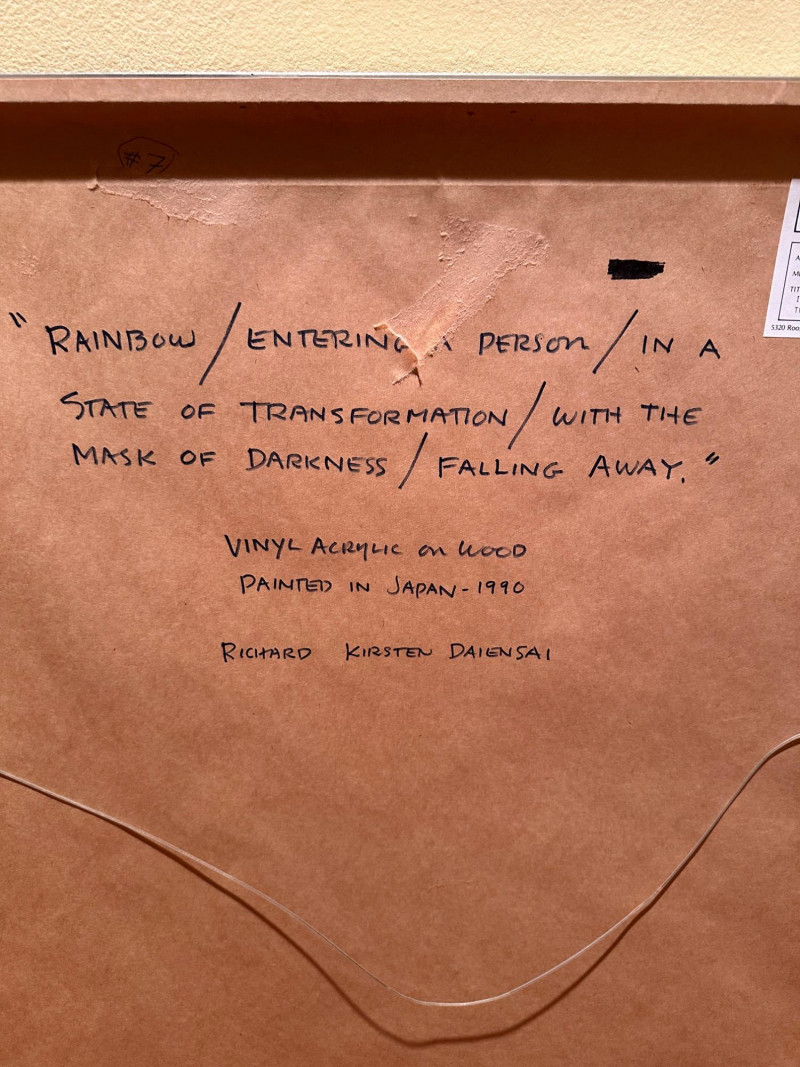 #7
"RAINBOW / ENTERING A PERSON / IN A
STATE OF TRANSFORMATION / WITH THE
MASK OF DARKNESS / FALLING AWAY."
VINYL ACRYLIC on WOOD
PAINTED IN JAPAN-1990
RICHARD KIRSTEN DAIENSAI
5320 Roo